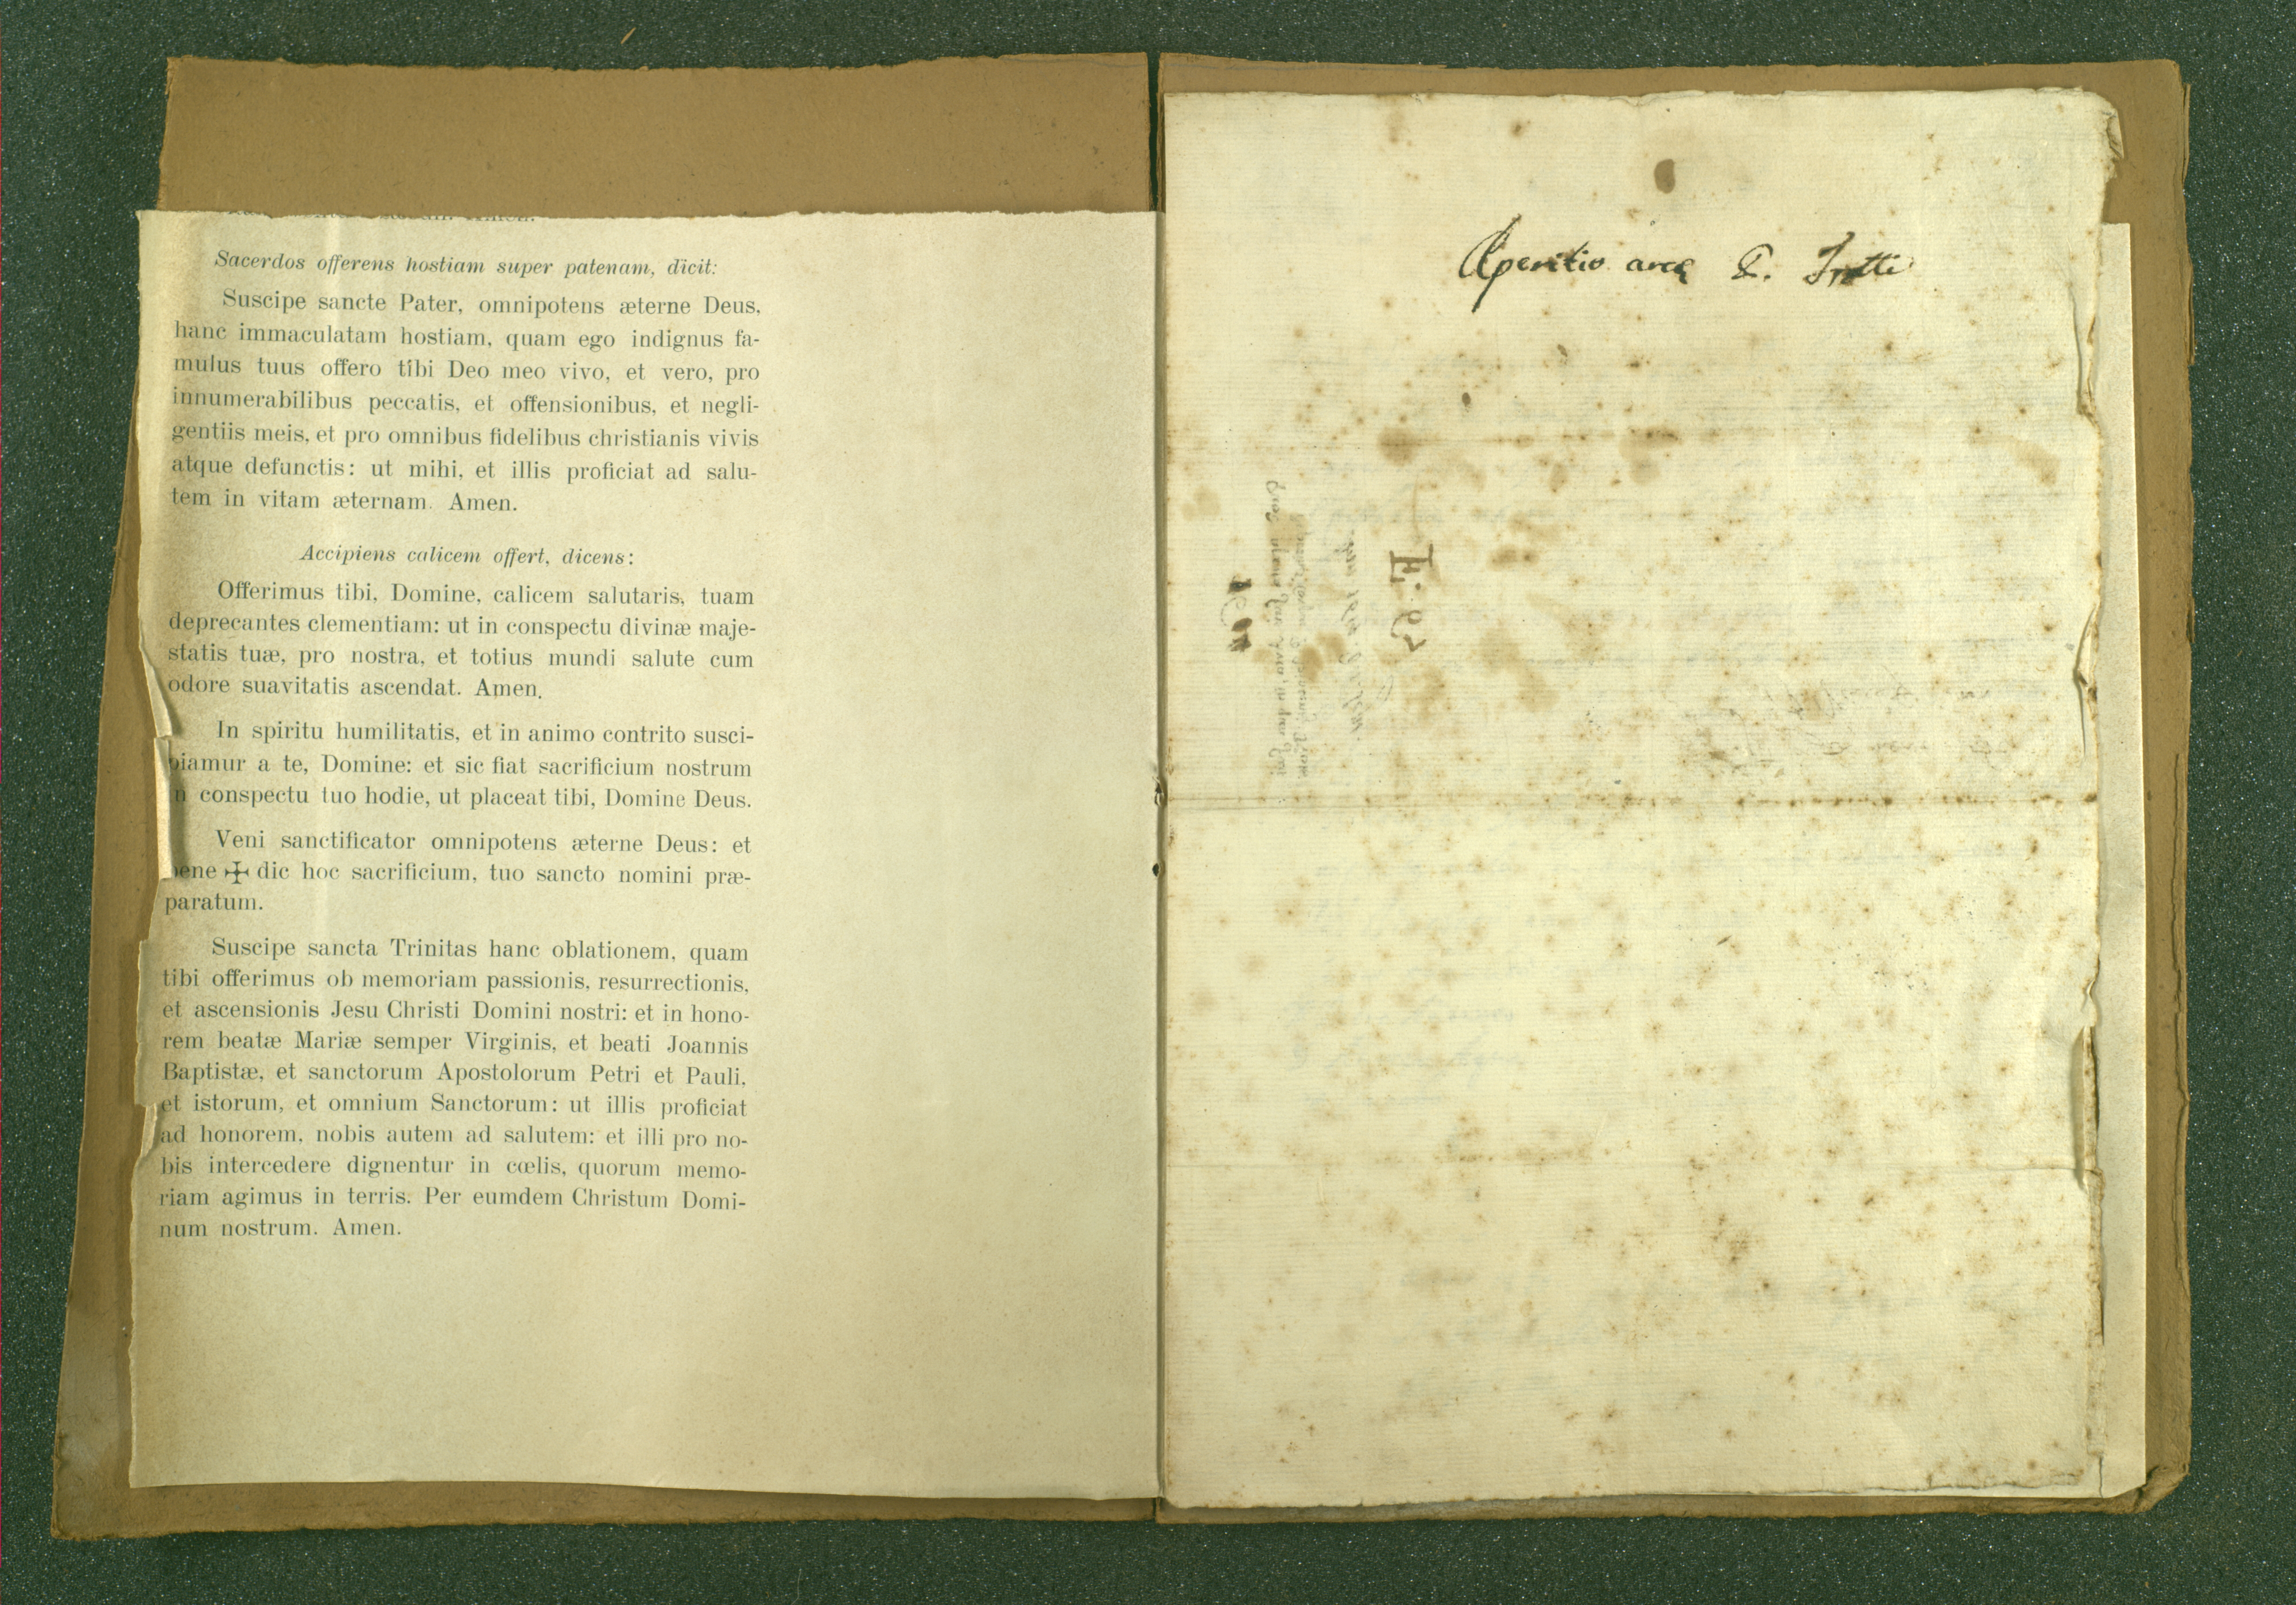 Sacerdos offerens hostiam super patenam, dicit:
Suscipe sancte Pater, omnipotens æterne Deus,
hanc immaculatam hostiam, quam ego indignus fa-
mulus tuus offero tibi Deo meo vivo, et vero, pro
innumerabilibus peccatis, et offensionibus, et negli-
gentiis meis, et pro omnibus fidelibus christianis vivis
atque defunctis: ut mihi, et illis proficiat ad salu-
tem in vitam æternam. Amen.
Accipiens calicem offert, dicens:
Offerimus tibi, Domine, calicem salutaris, tuam
deprecantes clementiam: ut in conspectu divinæ maje-
statis tuæ, pro nostra, et totius mundi salute cum
odore suavitatis ascendat. Amen.
In spiritu humilitatis, et in animo contrito susci-
piamur a te, Domine: et sic fiat sacrificium nostrum
n conspectu tuo hodie, ut placeat tibi, Domine Deus.
Veni sanctificator omnipotens æterne Deus: et
bene ✠ dic hoc sacrificium, tuo sancto nomini præ-
paratum.
Suscipe sancta Trinitas hanc oblationem, quam
tibi offerimus ob memoriam passionis, resurrectionis,
et ascensionis Jesu Christi Domini nostri: et in hono-
rem beatæ Mariæ semper Virginis, et beati Joannis
Baptistæ, et sanctorum Apostolorum Petri et Pauli,
et istorum, et omnium Sanctorum: ut illis proficiat
ad honorem, nobis autem ad salutem: et illi pro no-
bis intercedere dignentur in cœlis, quorum memo-
riam agimus in terris. Per eumdem Christum Domi-
num nostrum. Amen.
Aperitio arcę S.